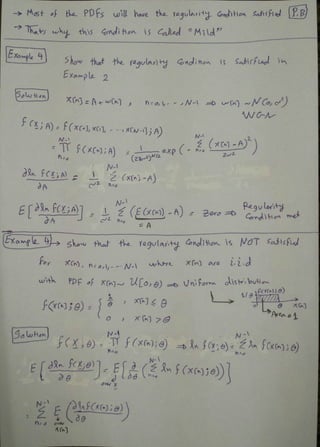 → Most of the PDFs will have the regularity condition satisfied P.8
→ Thats why this condition is called "Mild"
Example 4 Show that the regularity condition is satisfied in
Example 2
Solution X[n] = A + w[n] , n=0,1,...,N-1 ⇒ w[n] ~ N(0,σ²)
WGN
f(x;A) = f(x[0],x[1],...,x[N-1];A)
= ∏_{n=0}^{N-1} f(x[n];A) = 1/(2πσ²)^{N/2} exp(- ∑_{n=0}^{N-1} (x[n]-A)²/2σ²)
∂ln f(x;A)/∂A = 1/σ² ∑_{n=0}^{N-1} (x[n]-A)
E[∂ln f(x;A)/∂A] = 1/σ² ∑_{n=0}^{N-1} (E(x[n]) - A) = Zero ⇒ Regularity condition met
= A
Example 4 → Show that the regularity condition is NOT satisfied
for x[n], n=0,1,...N-1 where x[n] are i.i.d
with PDF of x[n] ~ U[0,θ] ⇒ Uniform distribution
f(x[n];θ) = { 1/θ , x[n] ≤ θ
0 , x[n] > θ
1/θ f(x[n];θ) θ x[n]
Area = 1
Solution f(x;θ) = ∏_{n=0}^{N-1} f(x[n];θ) ⇒ ln f(x;θ) = ∑_{n=0}^{N-1} ln f(x[n];θ)
E[∂ln f(x;θ)/∂θ] = E[∂/∂θ (∑_{n=0}^{N-1} ln f(x[n];θ))]
over x
= ∑_{n=0}^{N-1} E (∂ln f(x[n];θ)/∂θ)
over x[n]